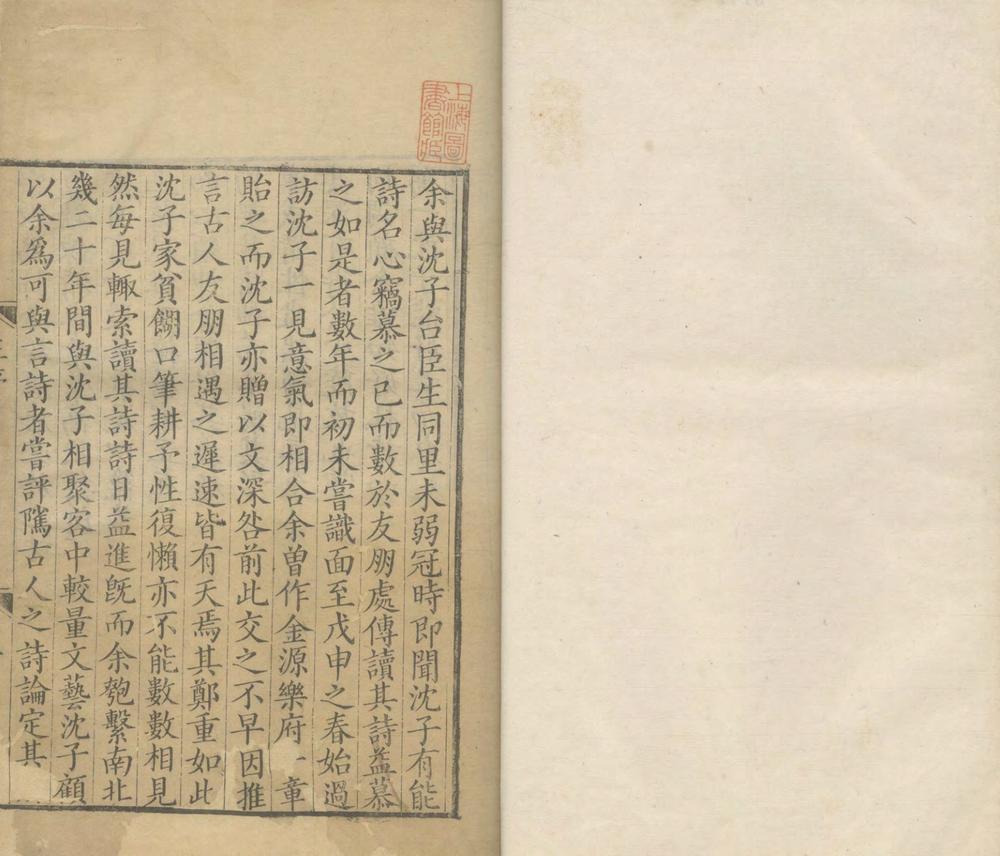 上海圖
書館藏
余與沈子台臣生同里未弱冠時即聞沈子有能
詩名心竊慕之已而數於友朋處傳讀其詩益慕
之如是者數年而初未嘗識面至戊申之春始過
訪沈子一見意氣即相合余曽作金源樂府一章
貽之而沈子亦贈以文深咎前此交之不早因推
言古人友朋相遇之遲速皆有天焉其鄭重如此
沈子家貧餬口筆耕予性復懶亦不能數數相見
然每見輙索讀其詩詩日益進旣而余匏繫南北
幾二十年間與沈子相聚客中較量文藝沈子顧
以余爲可與言詩者嘗評隲古人之詩論定其